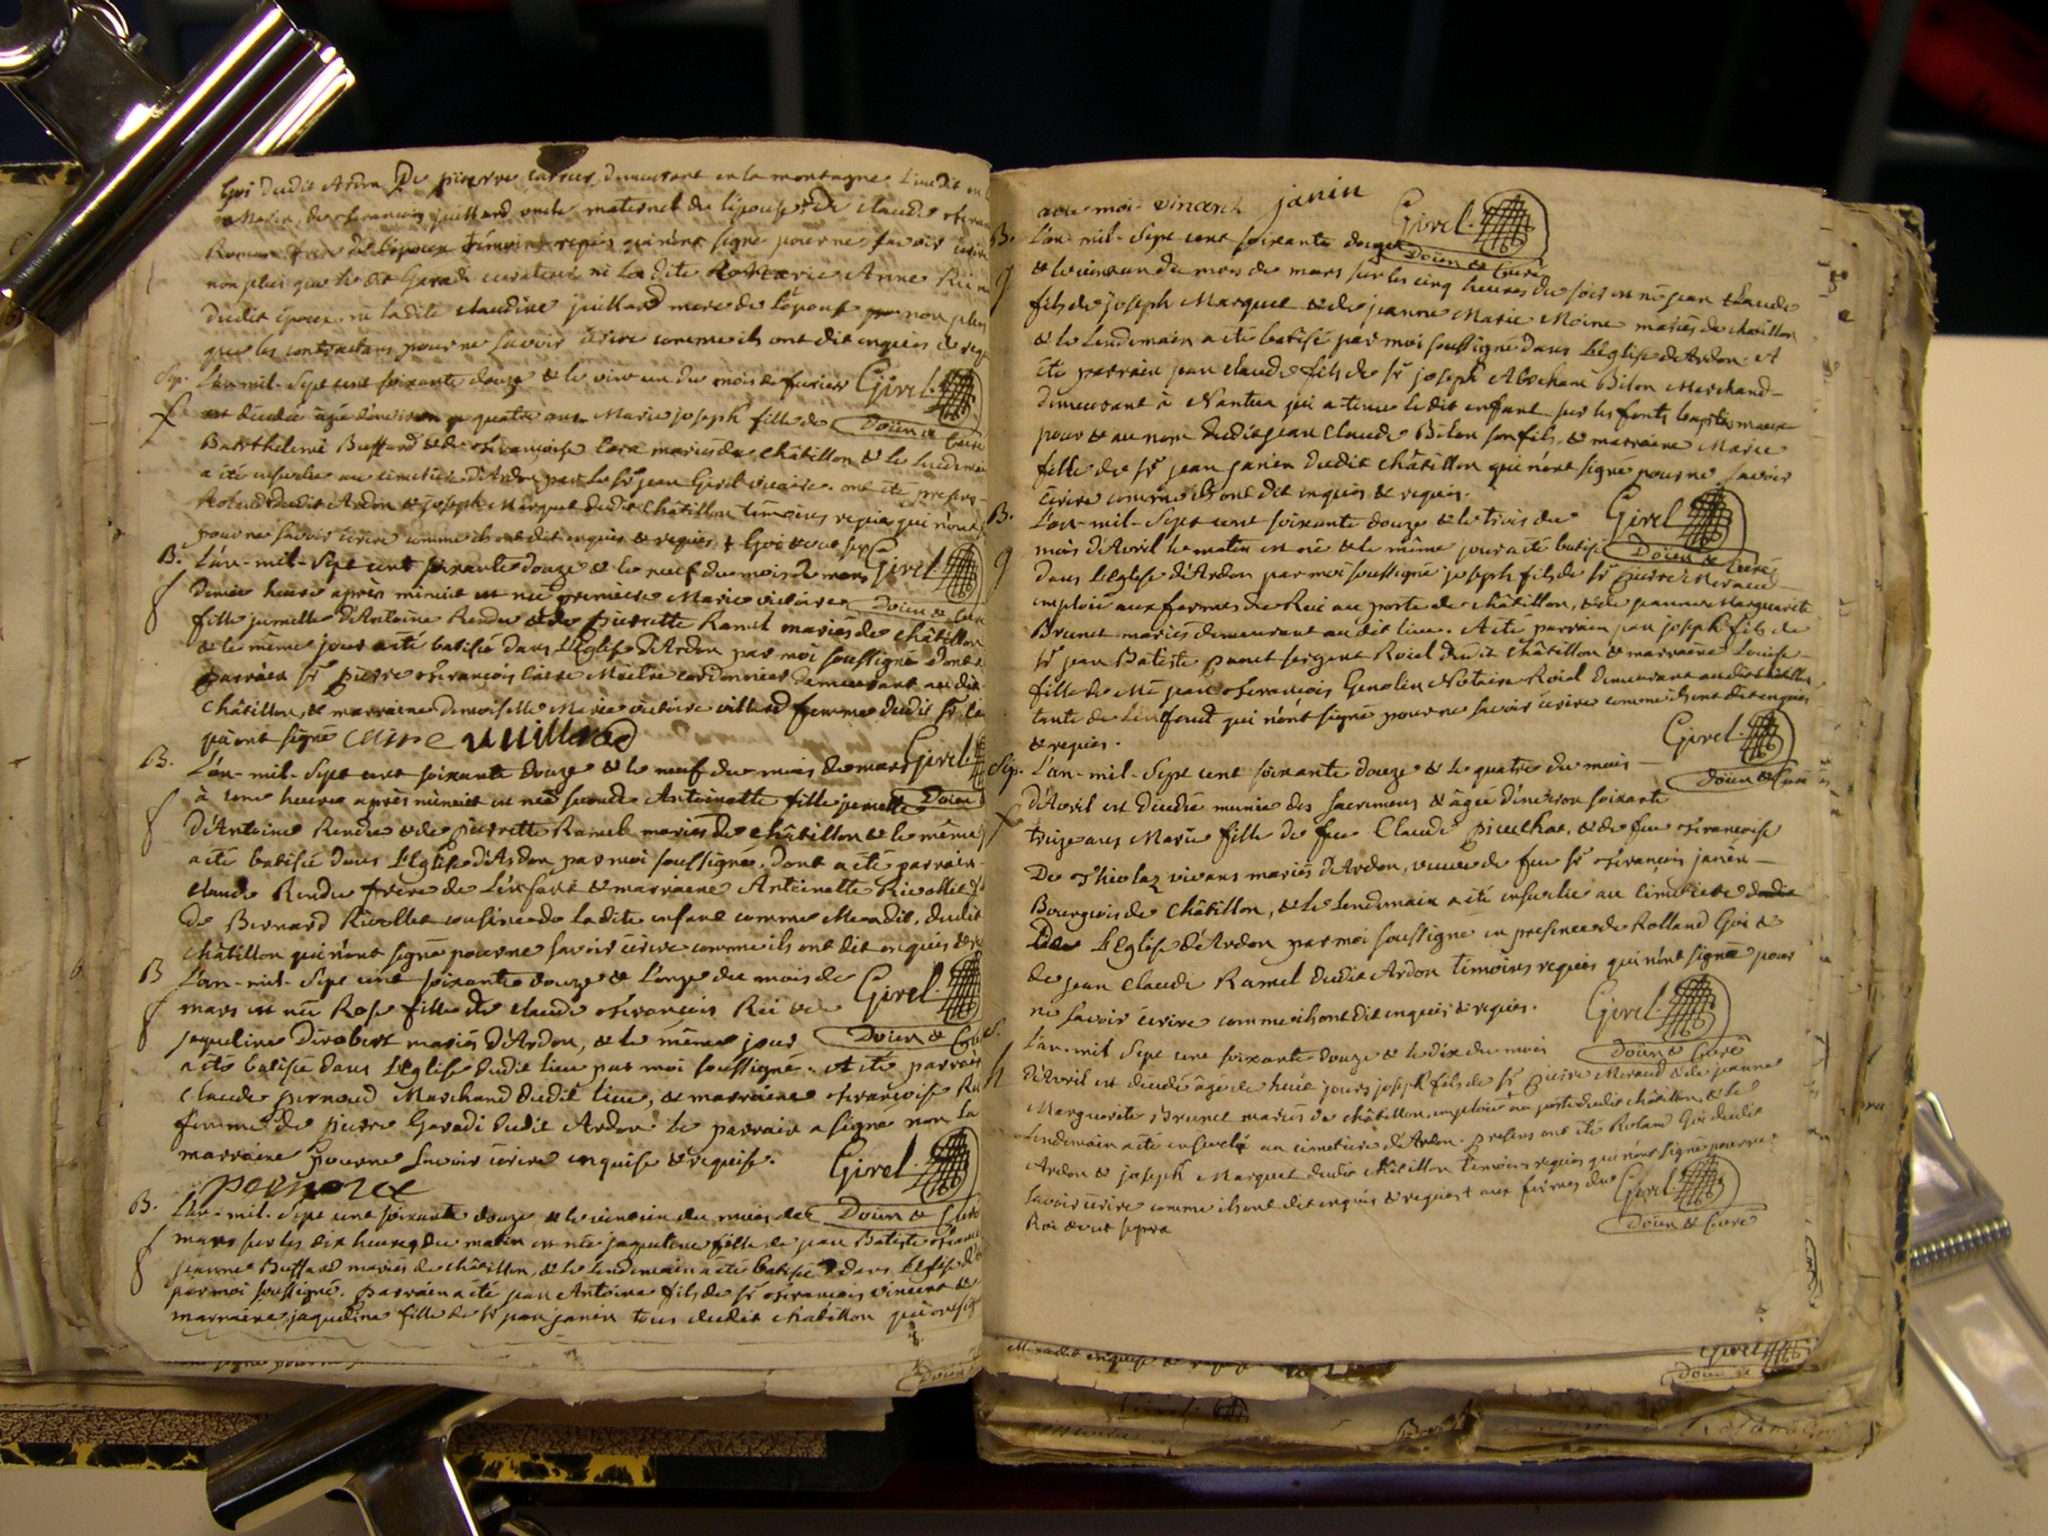 Goi dudit Ardon De pierre carrier, demeurant en la montagne
Marin, de francois juillard oncle maternel de l'épouse, De claude
Romain frere de l'époux témoins requis qui n'ont signé pour ne savoir écrire
non plus que le dit Garadi curateur ni la dite Marie Anne
dudit époux ni ladite claudine juillard mere de l'épouse non plus
que les contractans pour ne savoir écrire comme ils ont dit enquis & requis
Sep. L'an-mil-Sept cent soixante douze & le vint un du mois de fevrier Girel
est décédée âgée d'environ quatre ans Marie joseph fille de Doïen & Curé
Barthelemi Buffard & de francoise mariés de Châtillon & le lendemain
a été ensevelie au cimetiere d'Ardon par le Sr jean Girel vicaire. ont été presens
Roland dudit Ardon & joseph Marquet dudit Châtillon témoins requis qui n'ont
pour ne savoir écrire comme ils ont dit enquis & requis + Goi
B. L'an-mil-Sept cent soixante douze & le neuf du mois de mars Girel
demie heure après minuit est née premiere Marie victoire Doïen & Curé
fille jumelle d'Antoine Rendu & de pierrette Ramel mariés de châtillon
& le même jour a été batisée dans L'Eglise d'Ardon par moi soussigné dont
parrain Sr pierre francois Caire Maitre cordonnier demeurant au dit
Châtillon, & marraine demoiselle Marie victoire villard femme dudit Sr
qui ont signé caire vuillard
B. L'an-mil-Sept cent soixante douze & le neuf du mois de mars Girel
à une heure après minuit est née seconde Antoinette fille jumelle Doïen
d'Antoine Rendu & de pierrette Ramel mariés de châtillon & le même
a été batisée dans L'Eglise d'Ardon par moi soussigné. Dont a été parrain
claude Rendu frere de L'enfant & marraine Antoinette Ricollet
de Bernard Ricollet cousine de ladite enfant comme elle a dit, dudit
châtillon qui n'ont signé pour ne savoir écrire comme ils ont dit enquis &
B L'an-mil-Sept cent soixante douze & L'onze du mois de Girel
mars est née Rose fille de claude francois Rei & de
jaqueline Dirobert mariés d'Ardon, & le même jour Doïen & Curé
a été batisée dans L'Eglise dudit lieu par moi soussigné. A été parrain
claude pernoud Marchand dudit lieu, & marraine francoise
femme de pierre Garadi dudit Ardon le parrain a signé non la
marraine pour ne savoir écrire enquise & requise. Girel
pernoux
B. L'an-mil-Sept cent soixante douze & le vint un du mois de Doïen & Curé
mars sur les dix heures du matin est née jaqueline fille de jean Batiste
jeanne Buffard mariés de châtillon, & le lendemain a été batisée dans l'Eglise
par moi soussigné. parrain a été jean Antoine fils de Sr francois vincent &
marraine jaqueline fille de Sr jean janin tous dudit châtillon qui ont signé
avec moi vincent janin Girel
B. L'an-mil-Sept cent soixante douze Doïen & Curé
& le vint un du mois de mars sur les cinq heures du soir est né jean Claude
fils de joseph Marquet & de jeanne Marie Moine mariés de chatillon
& le Lendemain a été batisé par moi soussigné dans L'Eglise d'Ardon. A
été parrain jean claude fils de Sr joseph Abraham Bilon Marchand
demeurant à Nantua qui a tenu le dit enfant sur les fonts baptismaux
pour & au nom dudit jean Claude Bilon son fils & marraine Marie
fille de Sr jean janin dudit châtillon qui n'ont signé pour ne savoir
écrire comme ils ont dit enquis & requis. Girel
B. L'an-mil-Sept cent soixante douze & le trois du Doïen & Curé
mois d'Avril le matin est né & le même jour a été batisé
dans L'Eglise d'Ardon par moi soussigné joseph fils de Sr pierre Meraud
emploié aux fermes du Roi au poste de châtillon, & de jeanne Marguerite
Brunet mariés demeurant au dit lieu. A été parrain jean joseph fils de
Sr jean Batiste panet sergent Roial dudit châtillon & marraine Louise
fille de Me jean francois Genolin Notaire Roial demeurant au dit châtillon
tante de L'enfant qui n'ont signé pour ne savoir écrire comme ils ont dit enquis
& requis. Girel
Sep. L'an-mil-Sept cent soixante douze & le quatre du mois Doïen & Curé
d'Avril est décédée munie des sacremens & âgée d'environ soixante
treize ans Marie fille de feu Claude & de feu francoise
De Thiolaz vivans mariés d'Ardon, veuve de feu Sr francois janin
Bourgeois de Châtillon, & le Lendemain a été ensevelie au cimetiere
de L'Eglise d'Ardon par moi soussigné en presence de Rolland Goi &
de jean Claude Ramel dudit Ardon témoins requis qui n'ont signé pour
ne savoir écrire comme ils ont dit enquis & requis. Girel
S. L'an-mil Sept cent soixante douze & le dix du mois Doïen & Curé
d'Avril est décédé âgé de huit jours joseph fils de Sr pierre Meraud & de jeanne
Marguerite Brunet mariés de châtillon, emploié + au poste dudit châtillon, & le
Lendemain a été enseveli au cimetiere d'Ardon. presens ont été Roland Goi dudit
Ardon & joseph Marquet dudit châtillon témoins requis qui n'ont signé pour ne
savoir écrire comme ils ont dit enquis & requis + aux fermes du Girel
Roi Doïen & Curé
Girel